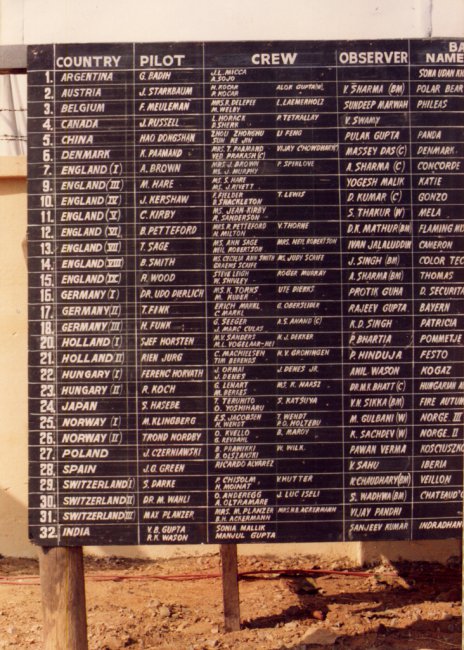 COUNTRY PILOT CREW OBSERVER BA
NAME
1. ARGENTINA G. BADIH J.L. MICCA A. SOJO SONA UDAN K
2. AUSTRIA J. STARKBAUM H. KOCAR P. KOCAR ALOK GUPTA V. SHARMA (BM) POLAR BEAR
3. BELGIUM F. MEULEMAN MRS. R. DELEPEE M. WELBY L. LAEMERHOLZ SUNDEEP MARWAH PHILEAS
4. CANADA J. RUSSELL L. HORACK D. SHERK P. TETRALLAY V. SWAMY
5. CHINA HAO DONGSHAN ZHOU ZHONGHU SUN KE JIN LI FENG PULAK GUPTA PANDA
6. DENMARK K. PAAMAND MRS. T. PAAMAND VED PRAKASH (C) VIJAY MASSEY DAS (C) DENMARK
7. ENGLAND (I) A. BROWN MRS. J. BROWN MS. J. MURPHY P. SPERLOVE A. SHARMA (C) CONCORDE
9. ENGLAND (III) M. HARE MS. S. HARE MS. J. RIVETT YOGESH MALIK KATIE
10. ENGLAND (IV) J. KERSHAW T. FIELDEN D. SHACKLETON T. LEWIS D. KUMAR (C) GONZO
11. ENGLAND (V) C. KIRBY MS. JEAN KIRBY R. SANDERSON S. THAKUR (W) MELA
12. ENGLAND (VI) B. PETTEFORD MRS. R. PETTEFORD N. MILTON V. THORNE D.K. MATHUR (BM) FLAMING
13. ENGLAND (VII) T. SAGE MS. ANN SAGE NEIL ROBERTSON MRS. NEIL ROBERTSON IVAN JALALUDDIN CAMERON
14. ENGLAND (VIII) B. SMITH MS. CECILIA ANN SMITH GRAEME SCAIFE MS. JUDY SCAIFE J. SINGH (BM) COLOR TEC
15. ENGLAND (IX) R. WOOD STEVE LEIGH W. SHIVLEY ROGER MURRAY A. SHARMA (BM) THOMAS
16. GERMANY (I) DR. UDO DIERLICH MS. K. TORNS M. HUBER UTE DIERKS PROTIK GUHA D. SECURITA
17. GERMANY (II) T. FINK ERICH MARKL C. MARKL G. OBERSEIDER RAJEEV GUPTA BAYERN
18. GERMANY (III) H. FUNK G. SEEGER J. MARC CULAS A.S. ANAND (C) K.D. SINGH PATRICIA
20. HOLLAND (I) SJEF HORSTEN M.V. SANDERS M.L. VOGELAAR-HEI K.J. DEKKER P. BHARTIA POMMETJE
21. HOLLAND (II) RIEN JURG C. MACHIELSEN TIM BERENDS H.V. GRONINGEN P. HINDUJA FESTO
22. HUNGARY (I) FERENC HORVATH J. ORMAI J. DENES J. DENES JR. ANIL WASON KOGAZ
23. HUNGARY (II) R. KOCH G. LENART M. BERKES MS. K. MAASZ DR. M.K. BHATT (C) HUNGARIAN
24. JAPAN S. HASEBE T. TERUHITO O. YOSHIHARU S. KATSUYA V.N. SIKKA (BM) FIRE AUTUM
25. NORWAY (I) M. KLINGBERG E.S. JACOBSEN H. WENDT T. WENDT P.O. HOLTEBU M. GULBANI (W) NORGE III
26. NORWAY (II) TROND NORDBY O. KVELLO G. REVDAHL B. MAROY K. SACHDEV (W) NORGE. II
27. POLAND J. CZERNIAWSKI B. PRAWICKI B. OLSZANSKI W. WILK. PAWAN VERMA KOSCIUSZKO
28. SPAIN J.G. GREEN RICARDO ALVAREZ V. SAHU IBERIA
29. SWITZERLAND (I) S. DARKE P. CHISOLM R. MOINAT V. HUTTER K. CHAUDHARY (BM) VEILLON
30. SWITZERLAND (II) DR. M. WAHLI O. ANDEREGG A. OLTRAMARE J. LUC ISELI S. WADHWA (BM)
31. SWITZERLAND (III) MAX PLANZER MRS. M. PLANZER B.H. ACKERMANN MRS. H.B. ACKERMANN VIJAY PANDHI
32. INDIA V.B. GUPTA R.K. WASON SONIA MALLIK MANJUL GUPTA SANJEEV KUMAR INDRADHAN